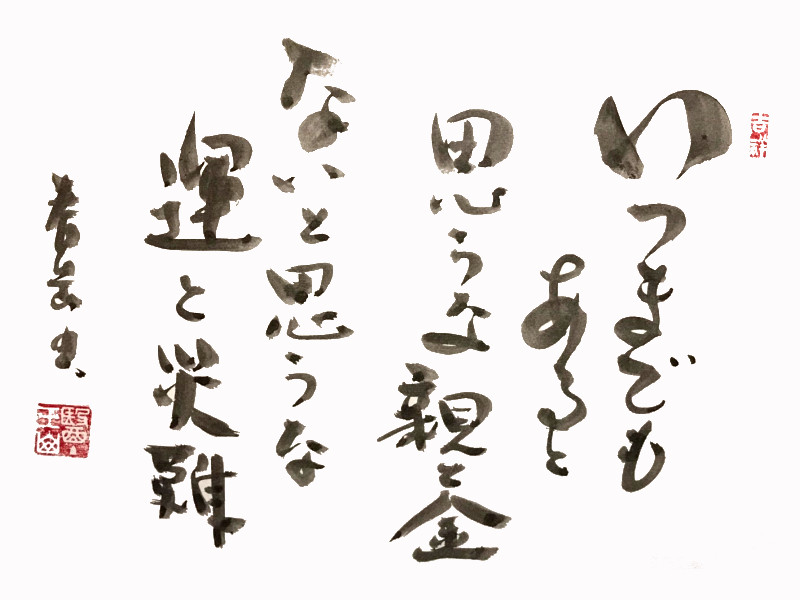 いつまでも
あると
思うな親と金
ないと思うな
運と災難